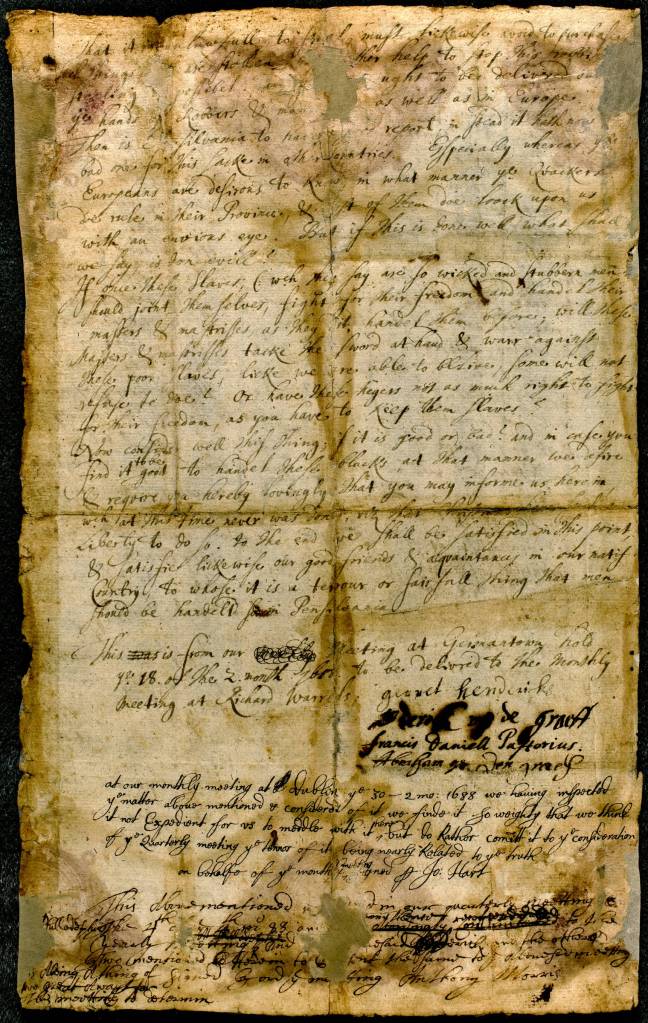 That it is lawfull to steal, must likewise avoid to purchase
such things as are stollen help to stop this
ought to be delivered out
ye hands of Robbers & as well as in Europe.
Then is Pensilvania to have a good report, in stead it hath now a
bad one for this sacke in other Countries. Especially whereas ye
Europeans are desirous to know in what manner ye Quackers
doe rule in their Province, & most of them doe loock upon us
with an envious eye. But if this is done well, what shall
we say is don evill?
If once these slaves, (wch they say are so wicked and stubbern men)
should joint themselves, fight for their freedom and handel their
masters & mastrisses as they did handel them before; will these
Masters & mastrisses tacke the sword at hand & warr against
these poor slaves, licke we are able to belive, some will not
refuse to doe? Or have these Negers not as much right to fight
for their freedom, as you have to keep them slaves?
Now consider well this thing, if it is good or bad? and in case you
find it to be good to handel these blacks at that manner, we desire
& require you hereby lovingly that you may informe us herein,
wch at this time never was done, viz that Christians have
Liberty to do so. to the end we shall be satisfied in this point,
& satisfie lickewise our good friends & acquaintances in our natif
Country, to whose it is a terrour or fairfull thing that men
should be handeld so in Pensilvania.
This was is from our meeting at Germantown hold
ye 18. of the 2. month 1688. to be delivred to the Monthly
meeting at Richard Warrels.
gerret hendericks
derick op de graeff
Francis Daniell Pastorius.
Abraham op Den graef
at our monthly meeting at Dublin ye 30 - 2 mo: 1688 we having inspected
ye matter above mentioned & considered of it we finde it so weighty that we think
it not Expedient for us to meddle with it here, but do Rather comitt it to ye consideration
of ye Quarterly meeting ye tenor of it being nearly Related to ye truth
on behalfe of ye monthly meeting signed p Jo: Hart
This Above mentioned was Read in our quarterly meeting
at Philadelphia the 4th of ye 4th 88 and
yearly meeting and the above said derick and the other
two mentioned therein to present the same to ye above sd meeting
it being a thing of Signed by order of ye meeting Anthony Morris
too great A weight for
this meeting to determin